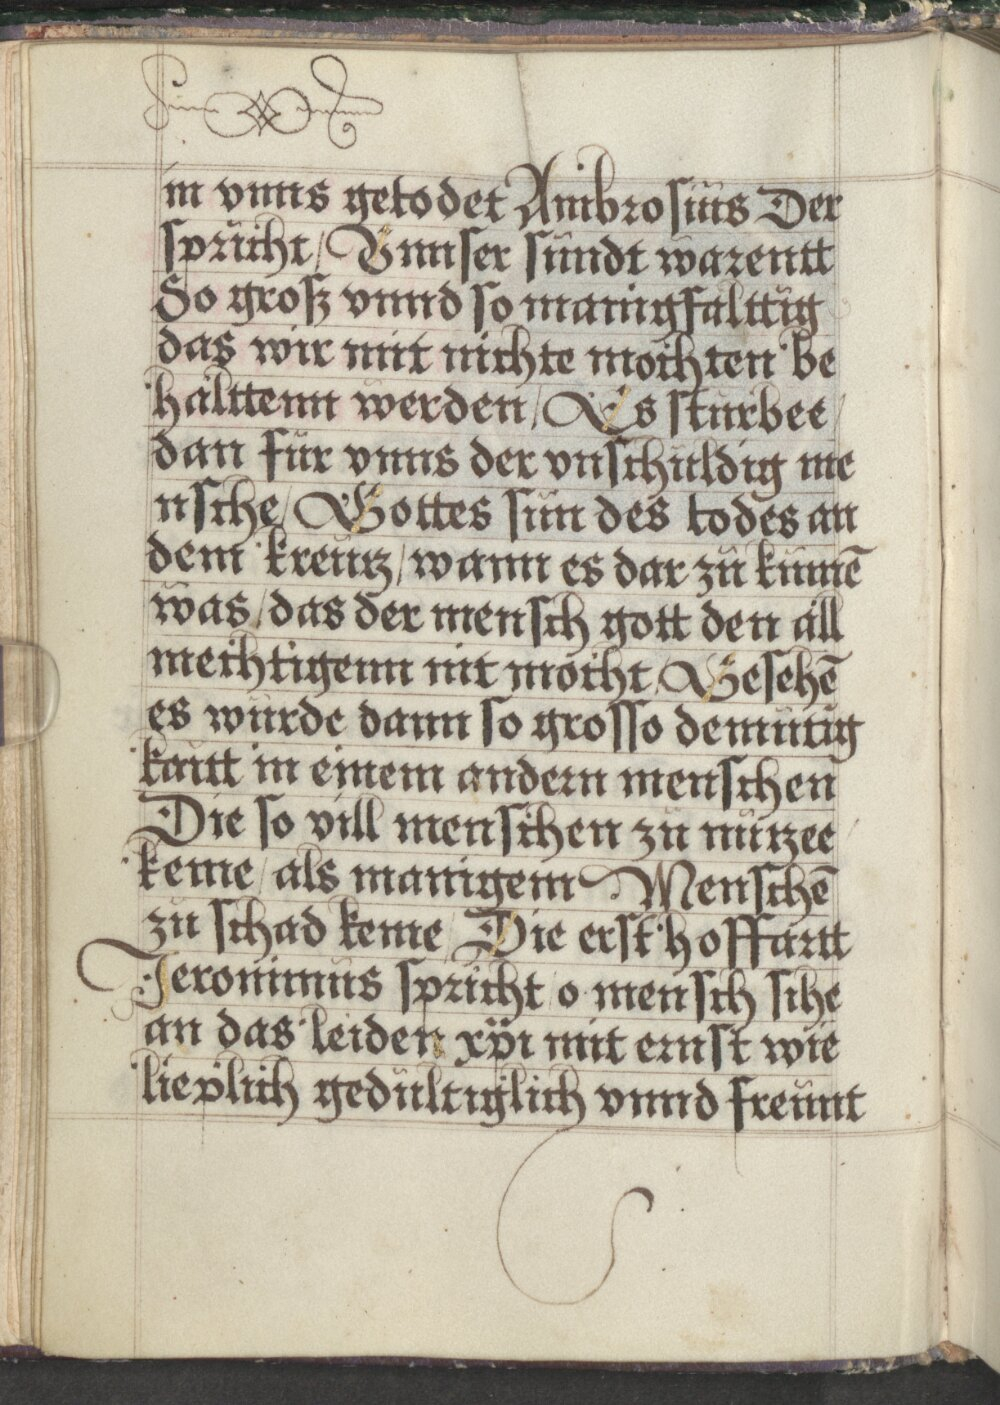 in vnns getodet Ambrosiüs Der
spricht / Vnnser sündt warentt
So groß vnnd so manigfalttig
das wir mit nichte mochten be
halttenn werden / Es stürbee /
dan für vnns der vnschüldig me
nsche / Gottes sün des todes an
dem kreütz / wann es dar zü kümē
was / das der mensch gott den all
mechtigenn nit mocht Gesehē
es würde dann so grosso demütig
kaitt in einem andern menschen
Die so vill menschen zü nützee /
keme / als manigem Menschē
zü schad keme Die erst hoffartt
Jeronimüs spricht / o mensch sihe
an das leiden xp̄i mit ernst wie
lieplich gedültiglich vnnd freünt